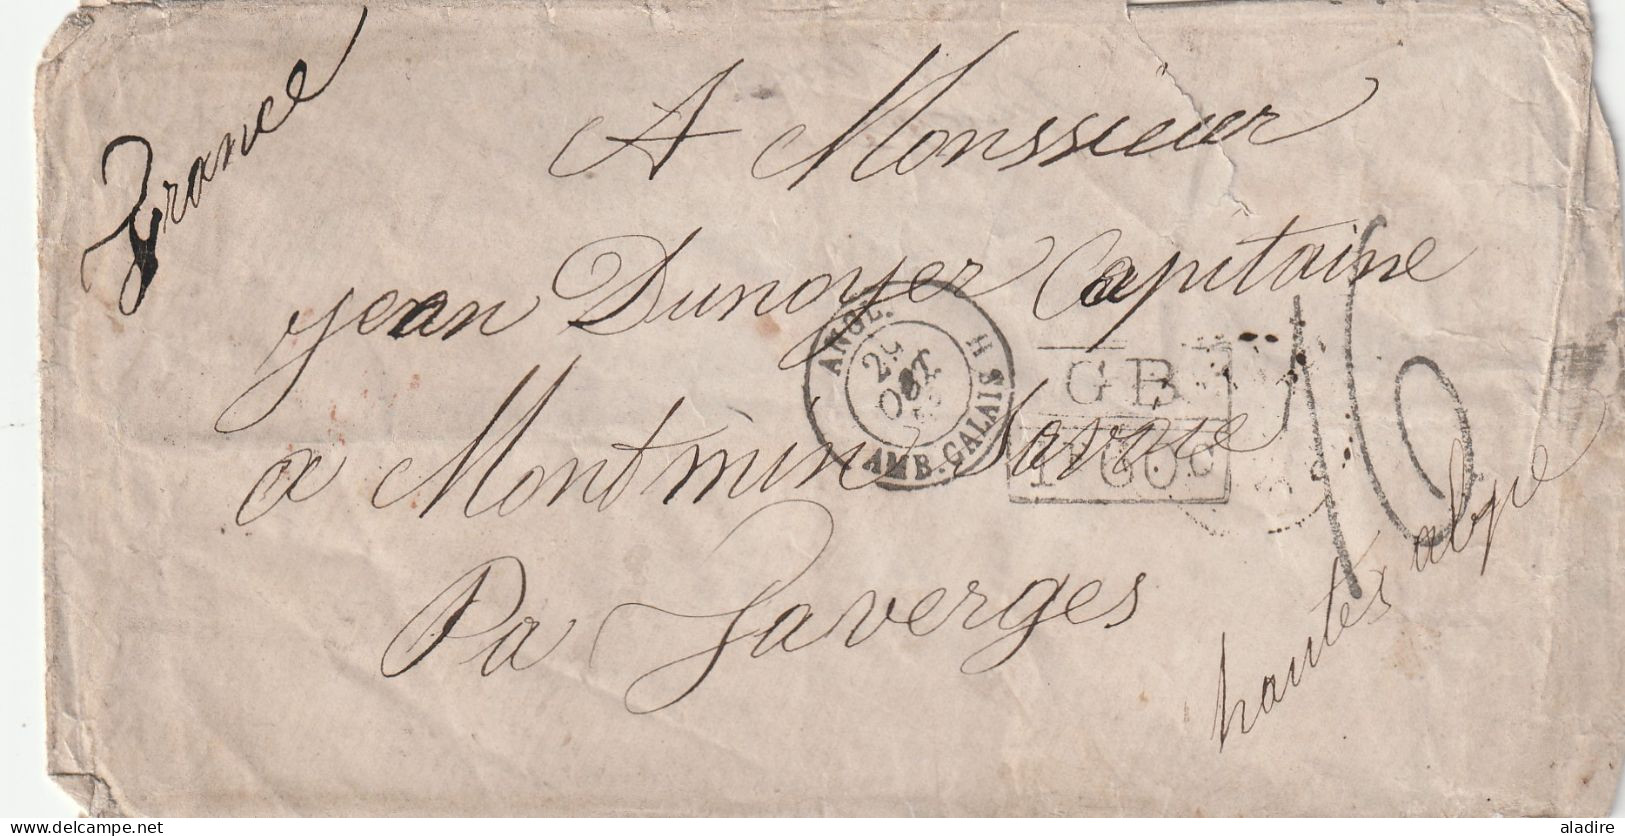 France
A Monssieur
jean Dunoyer Capitaine
a Montmin Savoie
Pa Faverges
hautes alpe
ANGL. AMB. CALAIS H
OCT.
GB
1F60C
16
delcampe.net
aladire